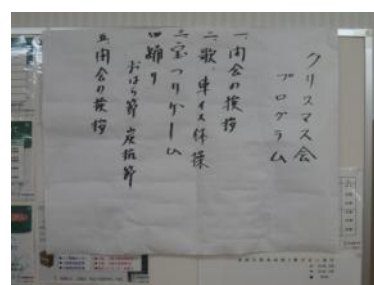 クリスマス会
プログラム
一、開会の挨拶
二、歌、車イス体操
三、宝つりゲーム
四踊り
おはら節 炭坑節
五、閉会の挨拶